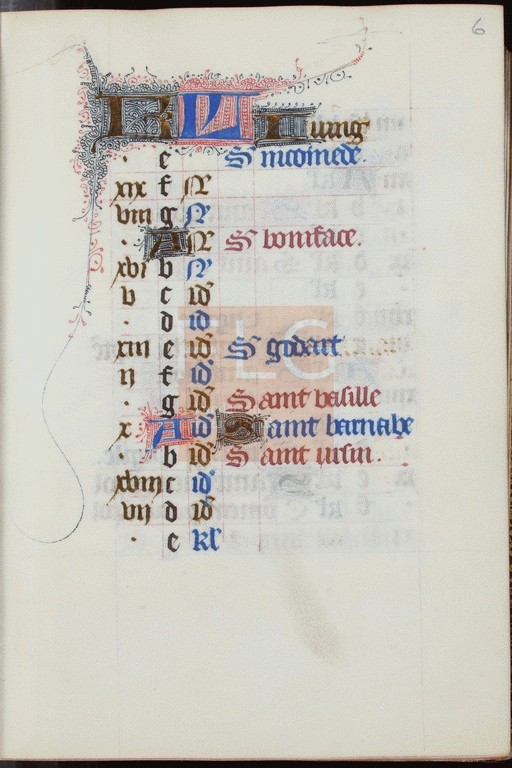 6
KL Iung
. e S nicomede.
xix f N
viii g N
. A N S boniface.
xvi b N
v c id
. d id
xiii e id S godart
ii f id
g id Saint basille
x A id Saint barnabe
. b id Saint ursin.
xviii c id
vii d id
. e kl
TLC